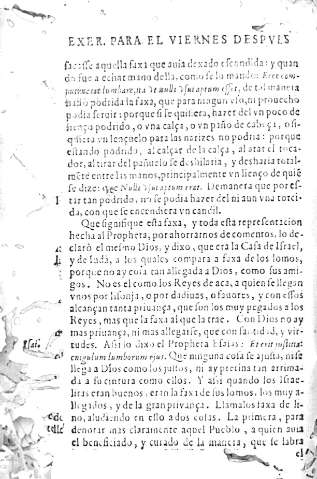 EXER. PARA EL VIERNES DESPVES
sacasse aquella faxa que auia dexado escondida: y quan
do fue a echar mano della, como se lo mandò: Ecce com-
putruerat lumbare, ita ut nulli usui aptum esset, de tal manera
halló podrida la faxa, que para ningun vso, ni prouecho
podia seruir: porque si se quisiera, hazer del vn poco de
lienço podrido, o vna calça, o vn paño de cabeça, o si-
quiera vn lençuelo para las narizes no podria: porque
estando podrido, al calçar de la calça, al atar el toca-
dor, al tirar del pañuelo se deshilaria, y desharia total-
mẽte entre las manos, principalmente vn lienço de quiẽ
se dize: Que Nulli usui aptum erat. De manera que por es-
tar tan podrido, no se podia hazer del ni aun vna torci-
da, con que se encendiera vn candil.
Que signifique esta faxa, y toda esta representacion
hecha al Propheta, por ahorrarnos de comentos, lo de-
clarò el mesmo Dios, y dixo, que era la Casa de Israel,
y de Iuda, a los quales compara a faxa de los lomos,
porque no ay cosa tan allegada a Dios, como sus ami-
gos. No es el como los Reyes de aca, a quien se llegan
vnos por lisonja, o por dadiuas, o fauores, y con essos
alcançan tanta priuança, que son los muy pegados a los
Reyes, mas que la faxa al que la trae. Con Dios no ay
mas priuança, ni mas allegarse, que con santidad, y vir-
tudes. Assi lo dixo el Propheta Esaias: Et erit iustitia
Esai.
cingulum lumborum eius. Que ninguna cosa se ajusta, ni se
llega a Dios como los justos, ni ay pretina tan arrima-
da a su cintura como ellos. Y assi quando los Israe-
litas eran buenos, eran la faxa de los lomos, los muy a-
llegados, y de la gran priuança. Llamalos faxa de li-
no, aludiendo en esso a dos cosas. La primera, para
denotar mas claramente aquel Pueblo, a quien auia
el beneficiado, y curado de la manera, que se labra
el